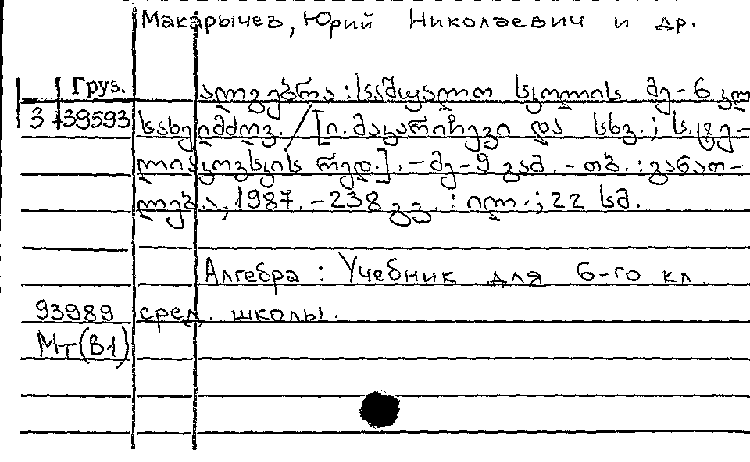 Макарычев, Юрий Николаевич и др.
Груз. ალგებრა : საშუალო სკოლის მე-6 კლ
3 39593 სახელმძღვ. / [ი. მაკარიჩევი და სხვ. ; ს. ტე-
ლიაკოვსკის რედ.]. - მე-9 გამ. - თბ. : განათ-
ლება, 1987. - 238 გვ. : ილ. ; 22 სმ.
Алгебра : Учебник для 6-го кл.
93989 сред. школы.
Мт(В1)